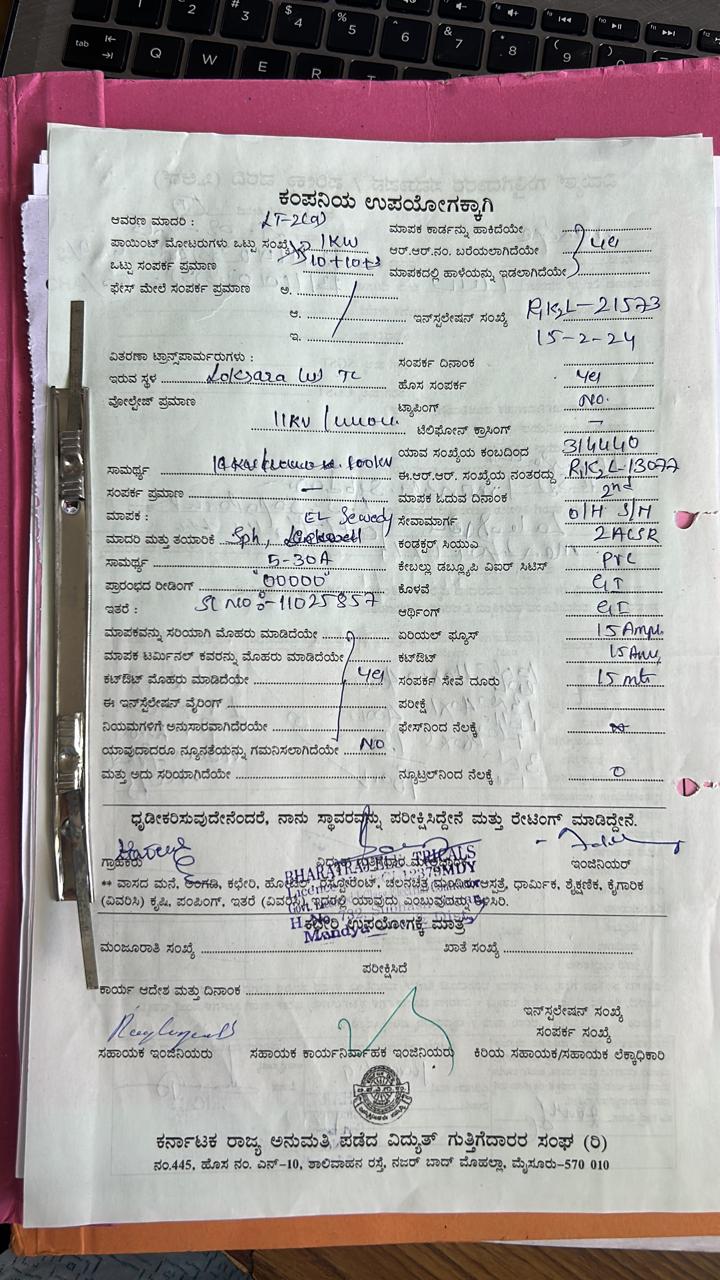 ಕಂಪನಿಯ ಉಪಯೋಗಕ್ಕಾಗಿ
ಆವರಣ ಮಾದರಿ : LT-2(a)
ಪಾಯಿಂಟ್ ಮೋಟರುಗಳು ಒಟ್ಟು ಸಂಖ್ಯೆ 1KW
ಒಟ್ಟು ಸಂಪರ್ಕ ಪ್ರಮಾಣ 10+10+3
ಫೇಸ್ ಮೇಲೆ ಸಂಪರ್ಕ ಪ್ರಮಾಣ ಅ.
ಆ.
ಇ.
ಮಾಪಕ ಕಾರ್ಡನ್ನು ಹಾಕಿದೆಯೇ
ಆರ್.ಆರ್.ನಂ. ಬರೆಯಲಾಗಿದೆಯೇ yes
ಮಾಪಕದಲ್ಲಿ ಹಾಳೆಯನ್ನು ಇಡಲಾಗಿದೆಯೇ
ಇನ್‌ಸ್ಟಲೇಷನ್ ಸಂಖ್ಯೆ 21573
15-2-24
ವಿತರಣಾ ಟ್ರಾನ್ಸ್‌ಪಾರ್ಮರುಗಳು :
ಇರುವ ಸ್ಥಳ Loksara
ವೋಲ್ಟೇಜ್ ಪ್ರಮಾಣ
11KV
ಸಾಮರ್ಥ್ಯ
ಸಂಪರ್ಕ ಪ್ರಮಾಣ —
ಮಾಪಕ : EL Sewedy
ಮಾದರಿ ಮತ್ತು ತಯಾರಿಕೆ Sph,
ಸಾಮರ್ಥ್ಯ 5-30A
ಪ್ರಾರಂಭದ ರೀಡಿಂಗ್ "00000"
ಇತರೆ : Sl No :-11025857
ಮಾಪಕವನ್ನು ಸರಿಯಾಗಿ ಮೊಹರು ಮಾಡಿದೆಯೇ
ಮಾಪಕ ಟರ್ಮಿನಲ್ ಕವರನ್ನು ಮೊಹರು ಮಾಡಿದೆಯೇ
ಕಟ್‌ಔಟ್ ಮೊಹರು ಮಾಡಿದೆಯೇ yes
ಈ ಇನ್‌ಸ್ಟಲೇಷನ್ ವೈರಿಂಗ್
ನಿಯಮಗಳಿಗೆ ಅನುಸಾರವಾಗಿದೆರಯೇ
ಯಾವುದಾದರೂ ನ್ಯೂನತೆಯನ್ನು ಗಮನಿಸಲಾಗಿದೆಯೇ NO
ಮತ್ತು ಅದು ಸರಿಯಾಗಿದೆಯೇ
ಸಂಪರ್ಕ ದಿನಾಂಕ
ಹೊಸ ಸಂಪರ್ಕ yes
ಟ್ಯಾಪಿಂಗ್ NO.
ಟೆಲಿಫೋನ್ ಕ್ರಾಸಿಂಗ್ —
ಯಾವ ಸಂಖ್ಯೆಯ ಕಂಬದಿಂದ 314440
ಈ.ಆರ್.ಆರ್. ಸಂಖ್ಯೆಯ ನಂತರದ್ದು 13077
ಮಾಪಕ ಓದುವ ದಿನಾಂಕ 2nd
ಸೇವಾಮಾರ್ಗ O/H S/H
ಕಂಡಕ್ಟರ್ ಸಿಯುಎ 2ACSR
ಕೇಬಲ್ಲು ಡಬ್ಲ್ಯೂಪಿ ವಿಐರ್ ಸಿಟಿಸ್ PVC
ಕೊಳವೆ GI
ಆರ್ಥಿಂಗ್ GI
ಏರಿಯಲ್ ಫ್ಯೂಸ್ 15Amps
ಕಟ್‌ಔಟ್ 15Am,
ಸಂಪರ್ಕ ಸೇವೆ ದೂರು 15 mts
ಪರೀಕ್ಷೆ
ಫೇಸ್‌ನಿಂದ ನೆಲಕ್ಕೆ
ನ್ಯೂಟ್ರಲ್‌ನಿಂದ ನೆಲಕ್ಕೆ 0
ಧೃಡೀಕರಿಸುವುದೇನೆಂದರೆ, ನಾನು ಸ್ಥಾವರವನ್ನು ಪರೀಕ್ಷಿಸಿದ್ದೇನೆ ಮತ್ತು ರೇಟಿಂಗ್ ಮಾಡಿದ್ದೇನೆ.
ಗ್ರಾಹಕರು
ಇಂಜಿನಿಯರ್
** ವಾಸದ ಮನೆ, ಅಂಗಡಿ, ಕಛೇರಿ, ಹೋಟೆಲ್, ರೆಸ್ಟೋರೆಂಟ್, ಚಲನಚಿತ್ರ ಆಸ್ಪತ್ರೆ, ಧಾರ್ಮಿಕ, ಶೈಕ್ಷಣಿಕ, ಕೈಗಾರಿಕ
(ವಿವರಿಸಿ) ಕೃಷಿ, ಪಂಪಿಂಗ್, ಇತರೆ (ವಿವರಿಸಿ) ಇದರಲ್ಲಿ ಯಾವುದು ಎಂಬುವುದನ್ನು ತಿಳಿಸಿರಿ.
Mandya
ಕಛೇರಿ ಉಪಯೋಗಕ್ಕೆ ಮಾತ್ರ
ಮಂಜೂರಾತಿ ಸಂಖ್ಯೆ ಖಾತೆ ಸಂಖ್ಯೆ
ಪರೀಕ್ಷಿಸಿದೆ
ಕಾರ್ಯ ಆದೇಶ ಮತ್ತು ದಿನಾಂಕ
ಇನ್‌ಸ್ಟಲೇಷನ್ ಸಂಖ್ಯೆ
ಸಂಪರ್ಕ ಸಂಖ್ಯೆ
ಸಹಾಯಕ ಇಂಜಿನಿಯರು ಸಹಾಯಕ ಕಾರ್ಯನಿರ್ವಾಹಕ ಇಂಜಿನಿಯರು ಕಿರಿಯ ಸಹಾಯಕ/ಸಹಾಯಕ ಲೆಕ್ಕಾಧಿಕಾರಿ
ಕರ್ನಾಟಕ ರಾಜ್ಯ ಅನುಮತಿ ಪಡೆದ ವಿದ್ಯುತ್ ಗುತ್ತಿಗೆದಾರರ ಸಂಘ (ರಿ)
ನಂ.445, ಹೊಸ ನಂ. ಎನ್-10, ಶಾಲಿವಾಹನ ರಸ್ತೆ, ನಜರ್ ಬಾದ್ ಮೊಹಲ್ಲಾ, ಮೈಸೂರು-570 010